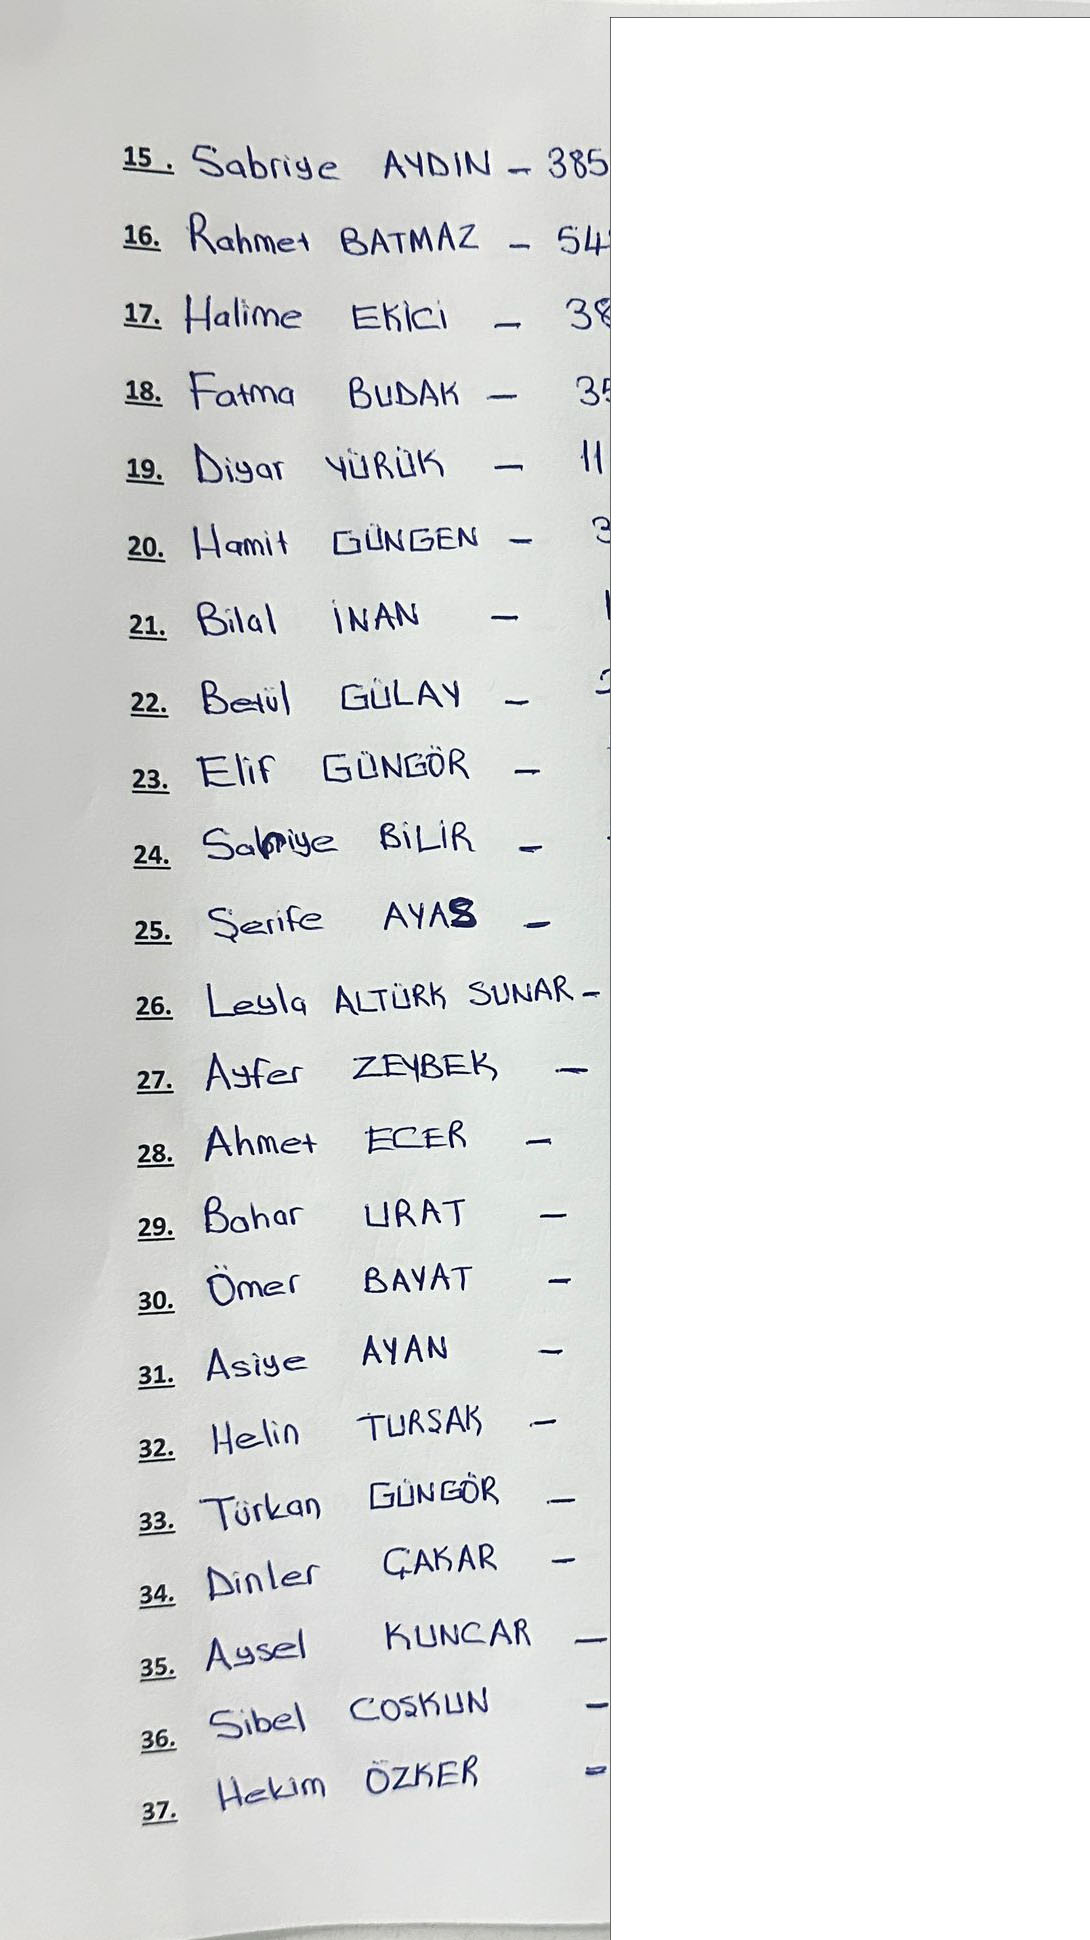 15. Sabriye AYDIN - 385
16. Rahmet BATMAZ - 54
17. Halime EKİCİ - 38
18. Fatma BUDAK - 35
19. Diyar YÜRÜK - 11
20. Hamit GÜNGEN - 3
21. Bilal İNAN - 1
22. Betül GÜLAY -
23. Elif GÜNGÖR -
24. Sabriye BİLİR -
25. Şerife AYAS -
26. Leyla ALTÜRK SUNAR -
27. Ayfer ZEYBEK -
28. Ahmet ECER -
29. Bahar URAT -
30. Ömer BAYAT -
31. Asiye AYAN -
32. Helin TURSAK -
33. Türkan GÜNGÖR -
34. Dinler ÇAKAR -
35. Aysel KUNCAR -
36. Sibel COŞKUN -
37. Hekim ÖZKER -